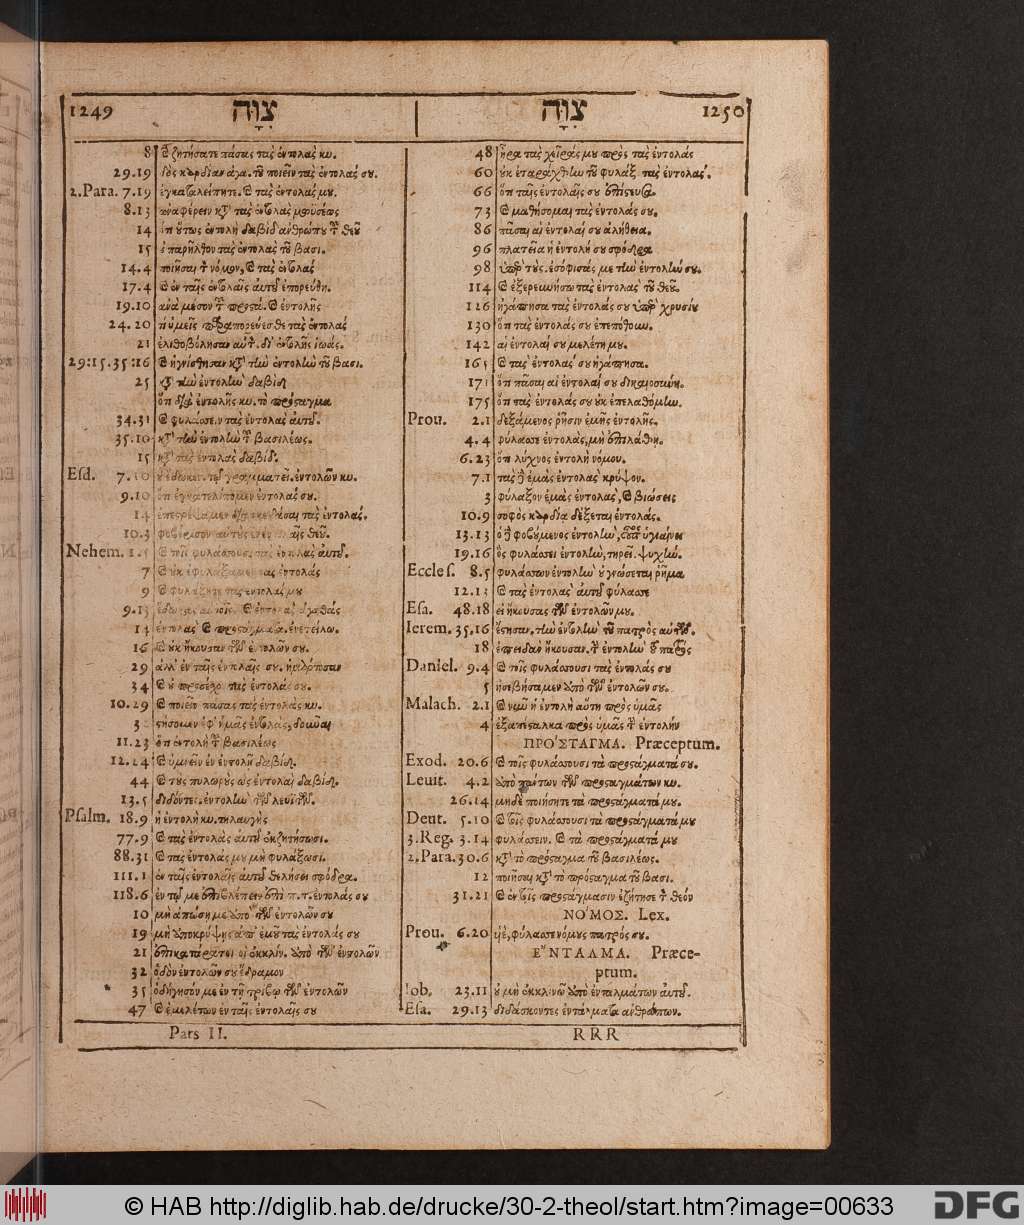 1249 צִוָּה צִוָּה 1250
8 ζητήσατε πάσας τὰς ἐντολὰς κυ.
29.19 δὸς καρδίαν ἀγα. τοῦ ποιεῖν τὰς ἐντολάς σου.
2.Para. 7.19 ἐγκαταλείπητε. καὶ τὰς ἐντολάς μου.
8.13 ἀναφέρειν κατὰ τὰς ἐντολὰς μωϋσέως
14 ὅτι οὕτως ἐντολὴ δαβὶδ ἀνθρώπου τοῦ θεοῦ
15 παρῆλθον τὰς ἐντολὰς τοῦ βασι.
14.4 ποιῆσαι τὸν νόμον, καὶ τὰς ἐντολάς
17.4 καὶ ἐν ταῖς ἐντολαῖς αὐτοῦ ἐπορεύθη.
19.10 ἀνὰ μέσον τοῦ προστά. καὶ ἐντολῆς
24.20 τί ὑμεῖς παραπορεύεσθε τὰς ἐντολάς
21 ἐλιθοβόλησαν αὐτὸν. δι' ἐντολῆς ἰωάς.
29:15.35:16 καὶ ἡγνίσθησαν κατὰ τὴν ἐντολὴν τοῦ βασι.
25 κατὰ τὴν ἐντολὴν δαβίδ
ὅτι δι' ἐντολῆς κυ. τὸ πρόσταγμα
34.31 καὶ φυλάσσειν τὰς ἐντολὰς αὐτοῦ.
35.10 κατὰ τὴν ἐντολὴν τοῦ βασιλέως.
15 κατὰ τὰς ἐντολὰς δαβίδ.
Esd. 7.10 γραμματεῖ. ἐντολῶν κυ.
9.10 ὅτι ἐγκατελίπομεν ἐντολάς σου.
14 ἐπεστρέψαμεν διασκεδάσαι τὰς ἐντολάς.
10.3 φοβέρισον αὐτοὺς ἐν ἐντολαῖς θεοῦ.
Nehem. 1.5 καὶ τοῖς φυλάσσουσι τὰς ἐντολὰς αὐτοῦ.
7 καὶ οὐκ ἐφυλάξαμεν τὰς ἐντολάς
9 καὶ φυλάξητε τὰς ἐντολάς μου
9.13 καὶ ἐντολὰς ἀγαθάς
14 ἐντολὰς καὶ προστάγματα. ἐνετείλω.
16 καὶ οὐκ ἤκουσαν τῶν ἐντολῶν σου.
29 ἀλλ' ἐν ταῖς ἐντολαῖς σου. ἡμάρτοσαν
34 καὶ οὐ προσέσχον τὰς ἐντολάς σου.
10.29 καὶ ποιεῖν πάσας τὰς ἐντολὰς κυ.
3 στήσομεν ἐφ' ἡμᾶς ἐντολάς, δοῦναι
11.23 ὅτι ἐντολὴ τοῦ βασιλέως
12.24 καὶ ὑμνεῖν ἐν ἐντολῇ δαβίδ.
44 καὶ τοὺς πυλωροὺς ὡς ἐντολαὶ δαβίδ.
13.5 διδόντες. ἐντολὴν τῶν λευϊτῶν.
Psalm. 18.9 ἡ ἐντολὴ κυ. τηλαυγὴς
77.9 καὶ τὰς ἐντολὰς αὐτοῦ ἐκζητήσωσι.
88.31 καὶ τὰς ἐντολάς μου μὴ φυλάξωσι.
111.1 ἐν ταῖς ἐντολαῖς αὐτοῦ θελήσει σφόδρα.
118.6 ἐν τῷ με ἐπιβλέπειν ἐπὶ π.τ. ἐντολάς σου
10 μὴ ἀπώσῃ με ἀπὸ τῶν ἐντολῶν σου
19 μὴ ἀποκρύψῃς ἀπ' ἐμοῦ τὰς ἐντολάς σου
21 ἐπικατάρατοι οἱ ἐκκλίν. ἀπὸ τῶν ἐντολῶν
32 ὁδὸν ἐντολῶν σου ἔδραμον
35 ὁδήγησόν με ἐν τῇ τρίβῳ τῶν ἐντολῶν
47 καὶ ἐμελέτων ἐν ταῖς ἐντολαῖς σου
48 ἦρα τὰς χεῖράς μου πρὸς τὰς ἐντολάς
60 οὐκ ἐταράχθην τοῦ φυλάξ. τὰς ἐντολάς.
66 ὅτι ταῖς ἐντολαῖς σου ἐπίστευσα.
73 καὶ μαθήσομαι τὰς ἐντολάς σου.
86 πᾶσαι αἱ ἐντολαί σου ἀλήθεια.
96 πλατεῖα ἡ ἐντολή σου σφόδρα
98 ὑπὲρ τοὺς. ἐσόφισάς με τὴν ἐντολήν σου.
114 καὶ ἐξερευνήσω τὰς ἐντολὰς τοῦ θεοῦ.
126 ἠγάπησα τὰς ἐντολάς σου ὑπὲρ χρυσίου
130 ὅτι τὰς ἐντολάς σου ἐπεπόθουν.
142 αἱ ἐντολαί σου μελέτη μου.
165 καὶ τὰς ἐντολάς σου ἠγάπησα.
171 ὅτι πᾶσαι αἱ ἐντολαί σου δικαιοσύνη.
175 ὅτι τὰς ἐντολάς σου οὐκ ἐπελαθόμην.
Prou. 2.1 δεξάμενος ῥῆσιν ἐμῆς ἐντολῆς.
4.4 φύλασσε ἐντολάς, μὴ ἐπιλάθῃ.
6.23 ὅτι λύχνος ἐντολὴ νόμου.
7.1 τὰς δὲ ἐμὰς ἐντολὰς κρύψον.
3 φύλαξον ἐμὰς ἐντολάς, καὶ βιώσεις
10.9 σοφὸς καρδίᾳ δέξεται ἐντολάς.
13.13 ὁ δὲ φοβούμενος ἐντολὴν, οὗτος ὑγιαίνει
19.16 ὃς φυλάσσει ἐντολὴν, τηρεῖ. ψυχήν.
Eccles. 8.5 φυλάσσων ἐντολὴν οὐ γνώσεται ῥῆμα
12.13 καὶ τὰς ἐντολὰς αὐτοῦ φύλασσε
Esa. 48.18 εἰ ἤκουσας τῶν ἐντολῶν μου.
Ierem. 35.16 ἔστησαν. τὴν ἐντολὴν τοῦ πατρὸς αὐτῶν.
18 ἐπειδὴ ἤκουσαν. τὴν ἐντολὴν τοῦ πατρὸς
Daniel. 9.4 καὶ τοῖς φυλάσσουσι τὰς ἐντολάς σου
5 ἠσεβήσαμεν ἀπὸ τῶν ἐντολῶν σου.
Malach. 2.1 καὶ νῦν ἡ ἐντολὴ αὕτη πρὸς ὑμᾶς
4 ἐξαπέσταλκα πρὸς ὑμᾶς τὴν ἐντολήν
ΠΡΟ'ΣΤΑΓΜΑ. Præceptum.
Exod. 20.6 καὶ τοῖς φυλάσσουσι τὰ προστάγματά σου.
Leuit. 4.2 ἀπὸ πάντων τῶν προσταγμάτων κυ.
26.14 μηδὲ ποιήσητε τὰ προστάγματά μου.
Deut. 5.10 καὶ τοῖς φυλάσσουσι τὰ προστάγματά μου
3.Reg. 3.14 φυλάσσειν. καὶ τὰ προστάγματά μου
2.Para. 30.6 κατὰ τὸ πρόσταγμα τοῦ βασιλέως.
12 ποιῆσαι κατὰ τὸ πρόσταγμα τοῦ βασι.
31.21 καὶ ἐν τοῖς προστάγμασιν ἐζήτησε τὸν θεόν
ΝΟ'ΜΟΣ. Lex.
Prou. 6.20 υἱὲ, φύλασσε νόμους πατρός σου.
Ε'ΝΤΑΛΜΑ. Præce-
ptum.
Iob. 23.11 οὐ μὴ ἐκκλινῶ ἀπὸ ἐνταλμάτων αὐτοῦ.
Esa. 29.13 διδάσκοντες ἐντάλματα ἀνθρώπων.
Pars II. RRR
© HAB http://diglib.hab.de/drucke/30-2-theol/start.htm?image=00633 DFG